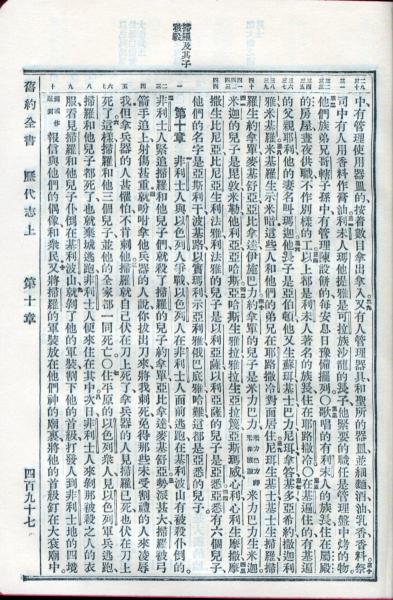 掃羅及其子
被殺
中有管理使用器皿的按着數目拿出拿入又有人管理器具和聖所的器皿並細麵酒油乳香香料祭
司中有人用香料作膏油利未人瑪他提雅是可拉族沙龍的長子他緊要的職任是管理盤中烤的物
他們族弟兄哥轄子孫中有人管理陳設餅每安息日豫備擺列○歌唱的有利未人的族長住在屬殿
的房屋晝夜供職不作別樣的工以上都是利未人著名的族長住在耶路撒冷○在基遍住的有基遍
的父親耶利他的妻名叫瑪迦他長子是亞伯頓他又生蘇珥基士巴力尼珥拿答基多亞希約撒迦利
雅米基羅米基羅生示米暗這些人和他們的弟兄在耶路撒冷對面居住尼珥生基士基士生掃羅掃
羅生約拿單麥基舒亞亞比拿達伊施巴力約拿單的兒子是米力巴力米力巴力生米迦
米迦的兒子是毘敦米勒他利亞亞哈斯亞哈斯生雅拉雅拉生亞拉篾亞斯瑪威心利心利生摩撒摩
撒生比尼亞比尼亞生利法雅利法雅的兒子是以利亞薩以利亞薩的兒子是亞悉亞悉有六個兒子
他們的名字是亞斯利干波基路以實瑪利示亞利雅俄巴底雅哈難這都是亞悉的兒子
第十章 非利士人與以色列人爭戰以色列人在非利士人面前逃跑在基利波山有被殺仆倒的
非利士人緊追掃羅和他兒子們就殺了掃羅的兒子約拿單亞比拿達麥基舒亞勢派甚大掃羅被弓
箭手追上射傷甚重就吩咐拿他兵器的人說你拔出刀來將我刺死免得那些未受割禮的人來凌辱
我但拿兵器的人甚懼怕不肯刺他掃羅就自己伏在刀上死了拿兵器的人見掃羅已死也伏在刀上
死了這樣掃羅和他三個兒子並他的全家都一同死亡○住平原的以色列衆人見以色列軍兵逃跑
掃羅和他兒子都死了也就棄城逃跑非利士人便來住在其中次日非利士人來剝那被殺之人的衣
服看見掃羅和他兒子仆倒在基利波山就剝了他的軍裝割下他的首級打發人到非利士地的四境
報信與他們的偶像和衆民又將掃羅的軍裝放在他們神的廟裏將他的首級釘在大衮廟中
舊約全書 歷代志上 第十章 四百九十七